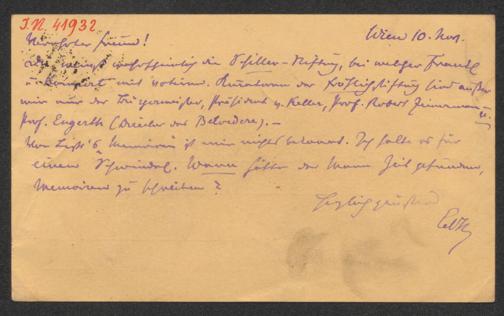 I.N. 41932
Verehrter Freund! Wien 10. Nov.
die Schiller-Stiftung, bei
und Curatoren der sind außer
mir nur der Bürgermeister, Präsident v. Keller, Prof. Robert Zimmermann u.
Prof. Engerth (Director des Belvedere). –
Von Liszt's Memoiren ist mir nichts bekannt. Ich halte es für
einen Schwindel. Wann hätte der Mann Zeit gefunden,
Memoiren zu schreiben?
Herzlich grüßend
EdH